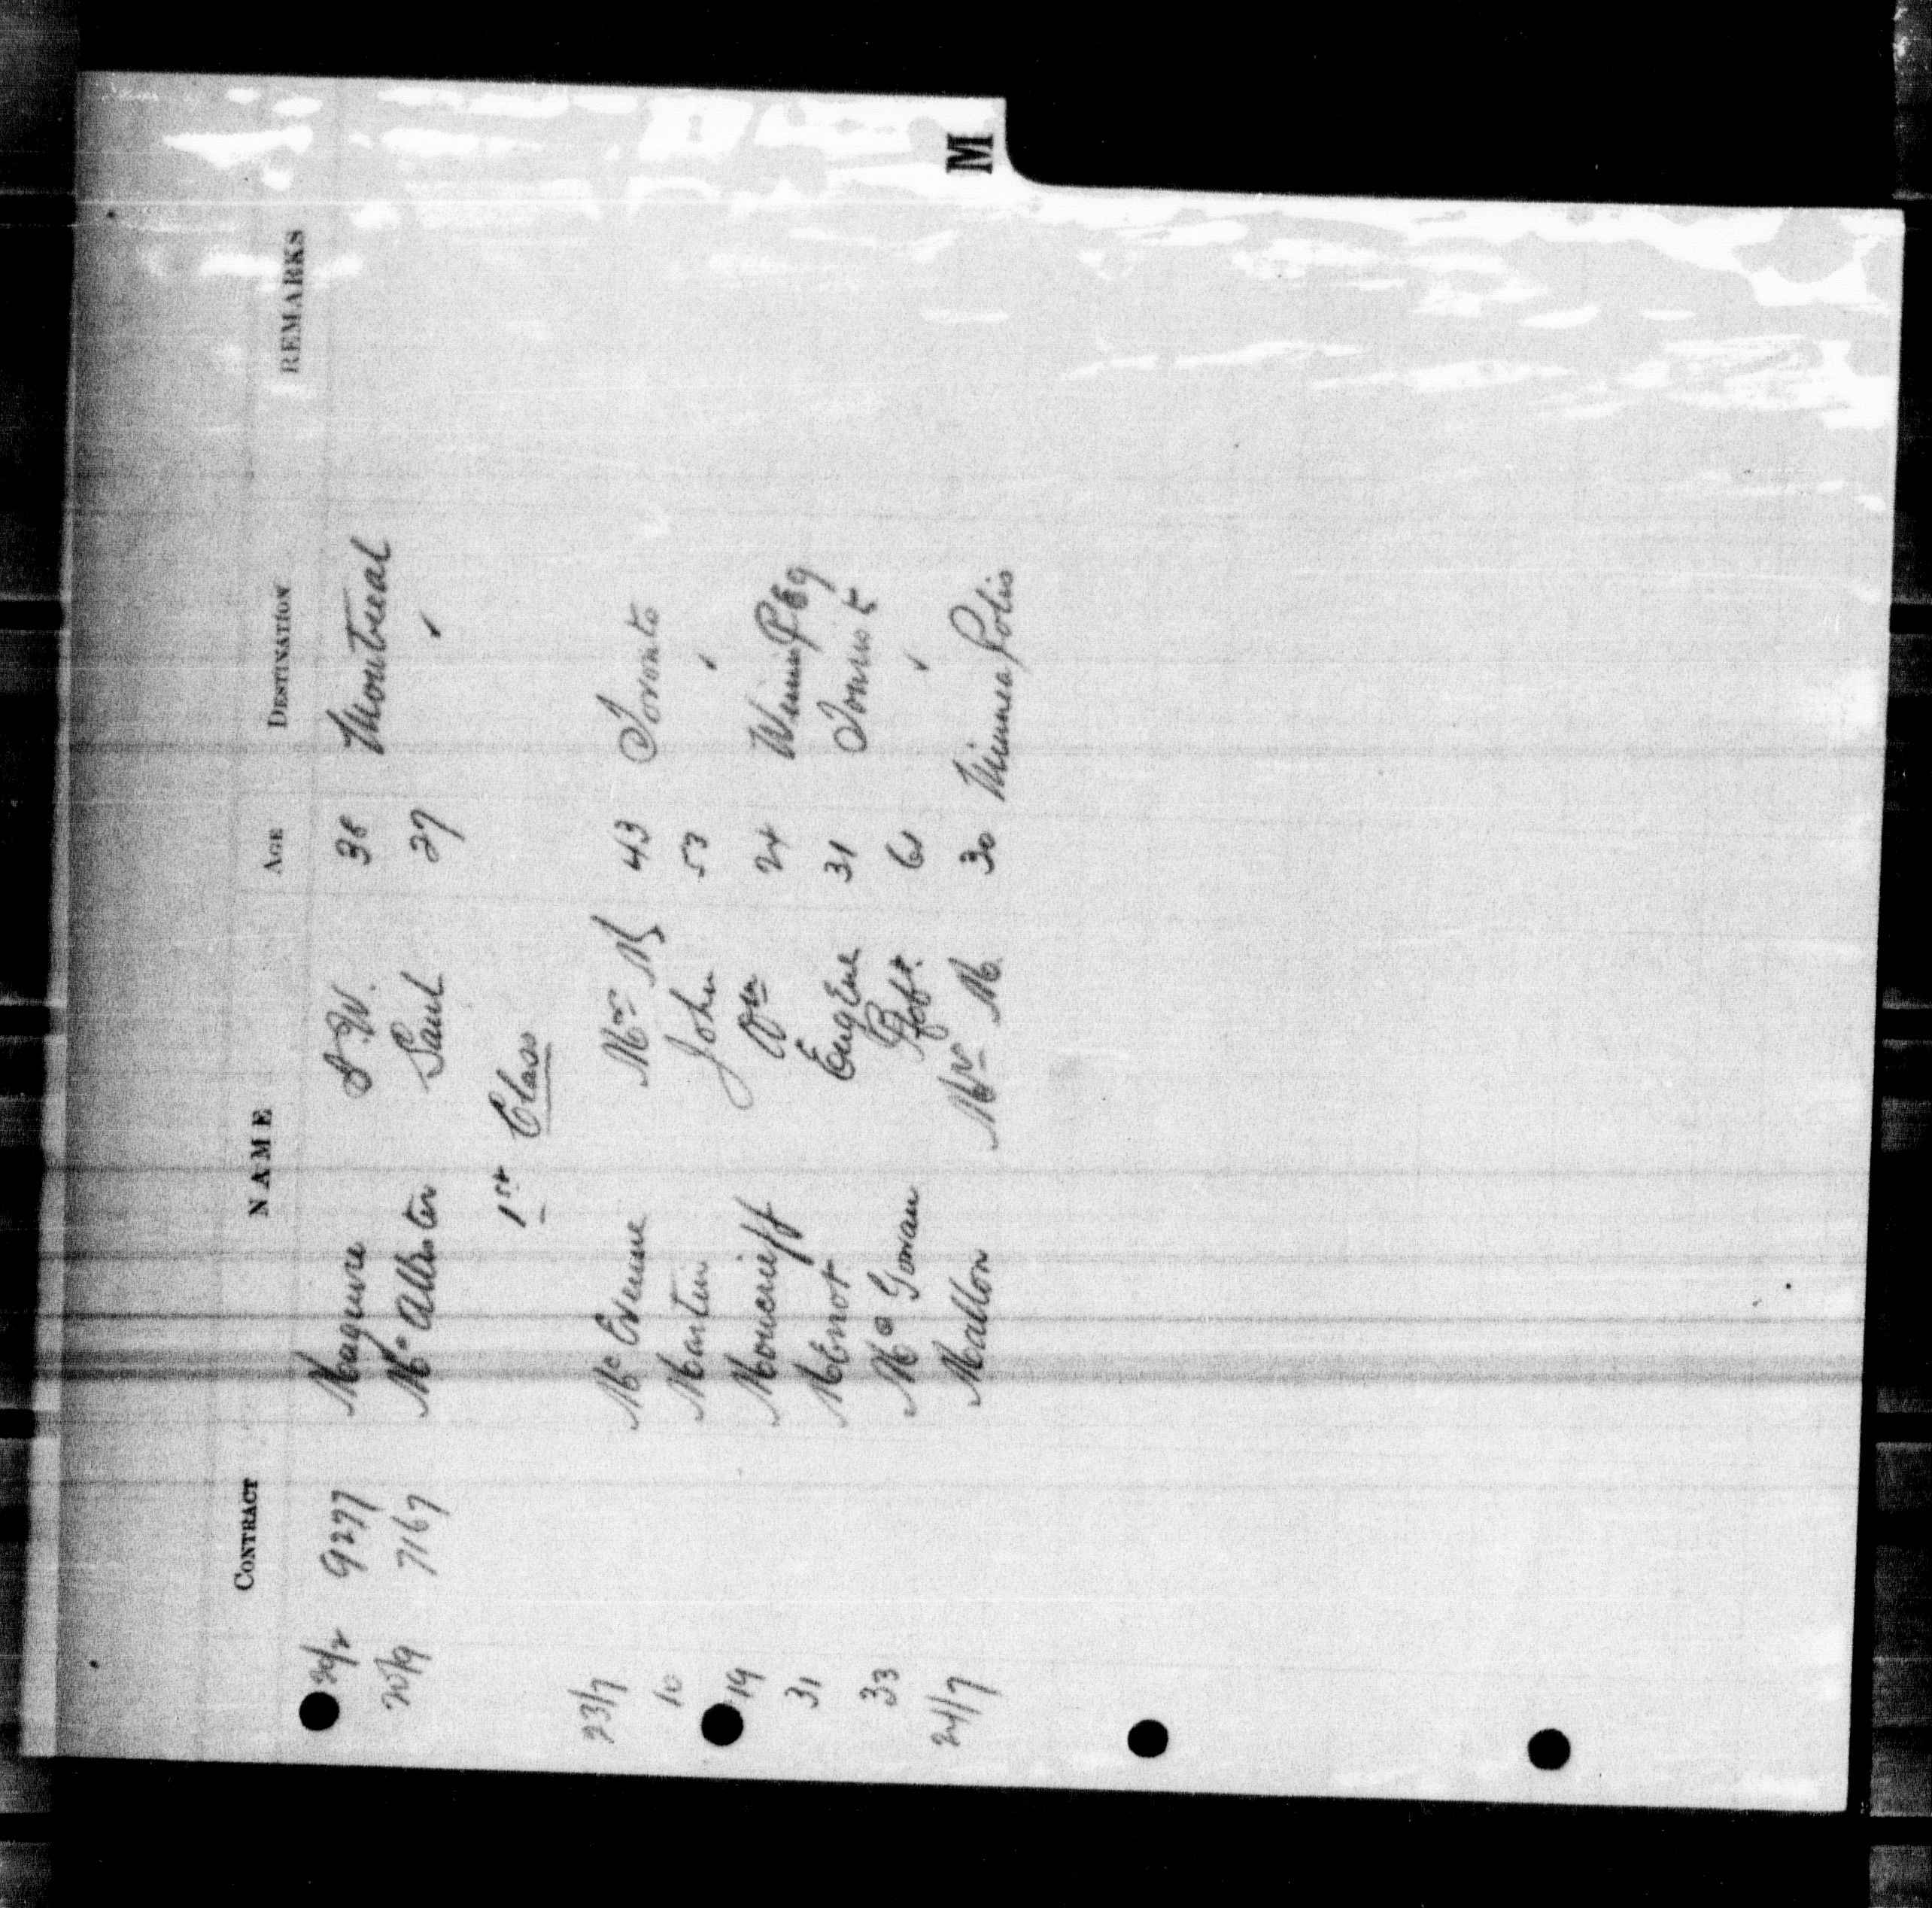 M
CONTRACT NAME AGE DESTINATION REMARKS
9277 Maguire W. 38 Montreal
20/9 7167 McAllister Saul 27 "
1st Class
23/7 43 Toronto
10 Martin John 53 "
19 Moncrieff Wm 24 Winnipeg
31 Menot Eugene 31
33 Robt. 61 "
24/7 Mallon Mr M. 30 Minneapolis